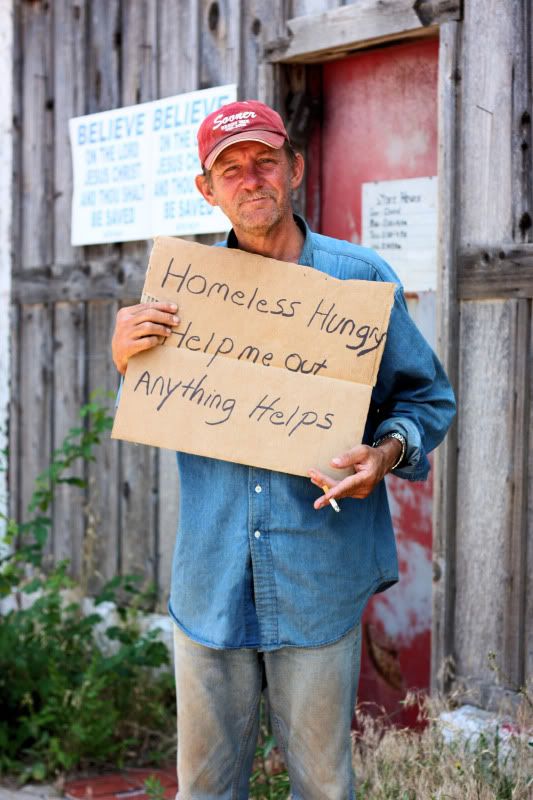 BELIEVE
ON THE LORD
JESUS CHRIST
AND THOU SHALT
BE SAVED
BELIEVE
ON THE LORD
JESUS CHRIST
AND THOU SHALT
BE SAVED
Sooner
Homeless Hungry
Help me out
Anything Helps